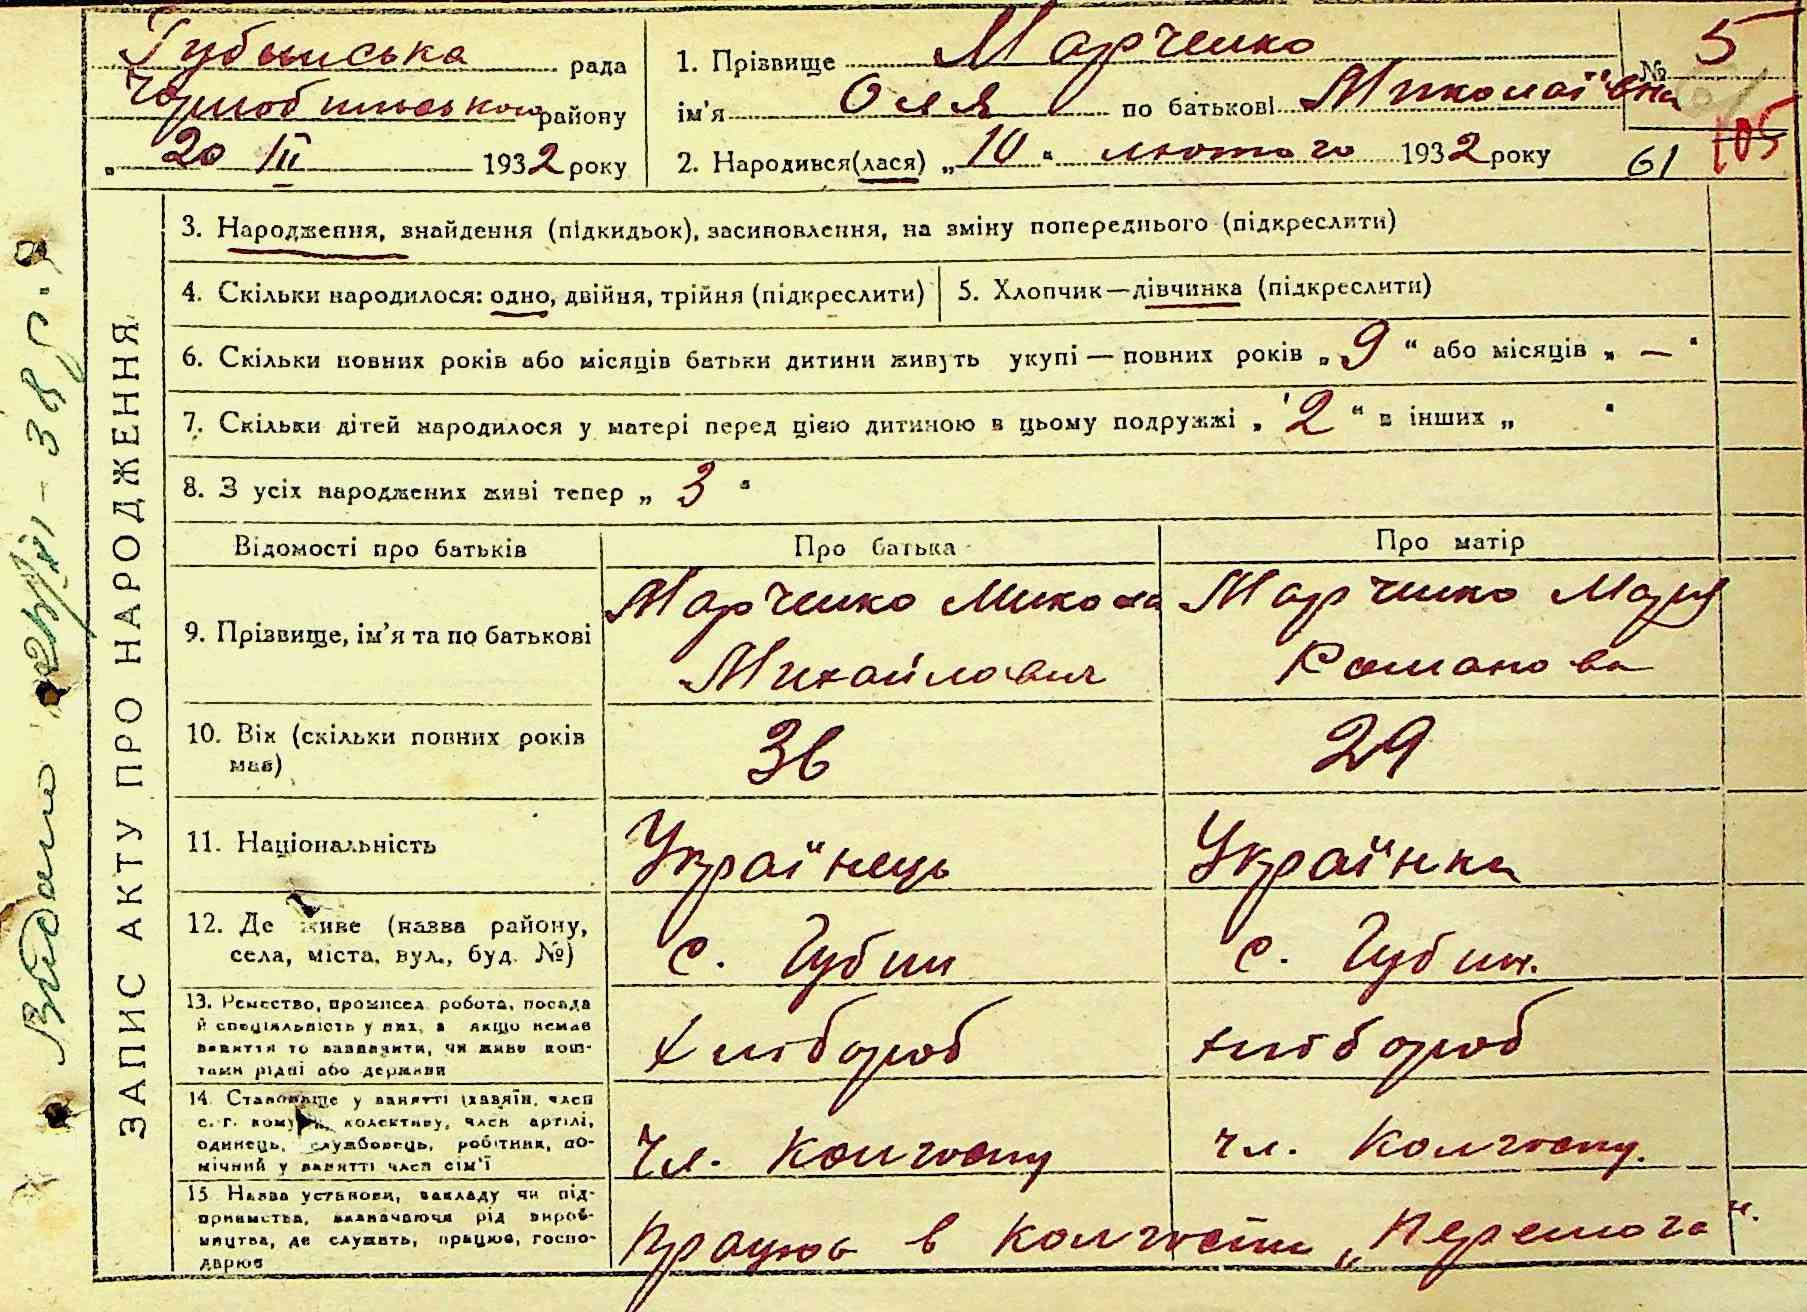 Губинська рада
Чорнобильського району
„ 20 III 1932 року
1. Прізвище Марченко
ім'я Оля по батькові Миколаївна
2. Народився(лася) „10“ лютого 1932 року
№ 5
105
61
ЗАПИС АКТУ ПРО НАРОДЖЕННЯ
3. Народження, знайдення (підкидьок), засиновлення, на зміну попереднього (підкреслити)
4. Скільки народилося: одно, двійня, трійня (підкреслити)
5. Хлопчик—дівчинка (підкреслити)
6. Скільки повних років або місяців батьки дитини живуть укупі — повних років „ 9 “ або місяців „ — “
7. Скільки дітей народилося у матері перед цією дитиною в цьому подружжі „ 2 “ в інших „ “
8. З усіх народжених живі тепер „ 3 “
Відомості про батьків
Про батька
Про матір
9. Прізвище, ім'я та по батькові
Марченко Микола
Михайлович
Марченко Мария
Романова
10. Вік (скільки повних років
має)
36
29
11. Національність
Українець
Українка
12. Де живе (назва району,
села, міста, вул., буд. №)
с. Губин
с. Губин.
13. Ремество, промисел, робота, посада
й спеціяльність у них, а якщо немає
заняття то зазначити, чи живе кош-
тами рідні або держави
Хлібороб
хлібороб
14. Становище у занятті (хазяїн, член
с.-г. комуни, колективу, член артілі,
одинець, службовець, робітник, по-
мічний у занятті член сім'ї
Чл. Колгоспу
чл. Колгоспу.
15. Назва установи, закладу чи під-
приємства, зазначаючи рід вироб-
ництва, де служить, працює, госпо-
дарює
Працює в Колгоспі „Перемога“.
Видано 25/XII - 38 р.